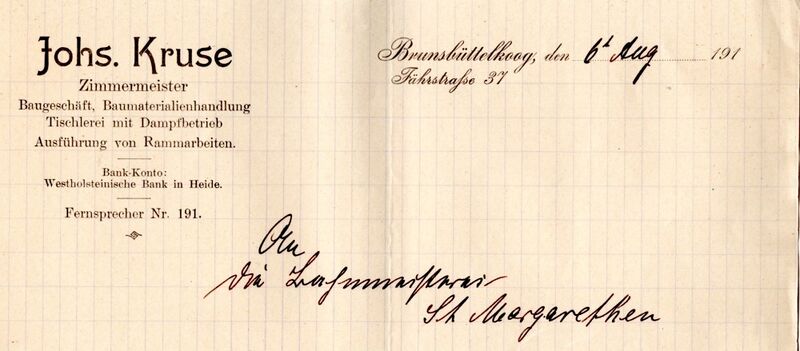 Johs. Kruse
Zimmermeister
Baugeschäft, Baumaterialienhandlung
Tischlerei mit Dampfbetrieb
Ausführung von Rammarbeiten.
Bank-Konto:
Westholsteinische Bank in Heide.
Fernsprecher Nr. 191.
Brunsbüttelkoog, den 6t Aug 191
Fährstraße 37
An
die Bahnmeisterei
St Margarethen